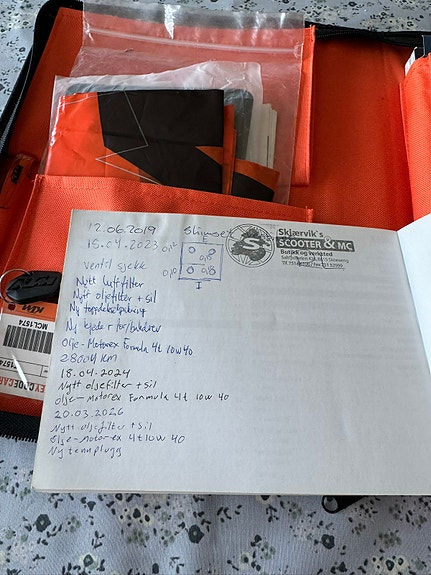 12.06.2019
Shimset
15.04.2023
E
0,12
0,10
I
Skjærvik's
SCOOTER & MC
Butikk og verksted
ventil sjekk
Nytt luftfilter
Nytt oljefilter + sil
Ny toppdekselpakning
Ny kjede + for/bakdrev
Olje - Motorex Formula 4t 10w40
28004 KM
18.04.2024
Nytt oljefilter + sil
Olje - Motorex Formula 4t 10w 40
20.03.2026
Nytt oljefilter + sil
Olje - Motorex 4t 10w 40
Ny tennplugg
KTM
MCL1574